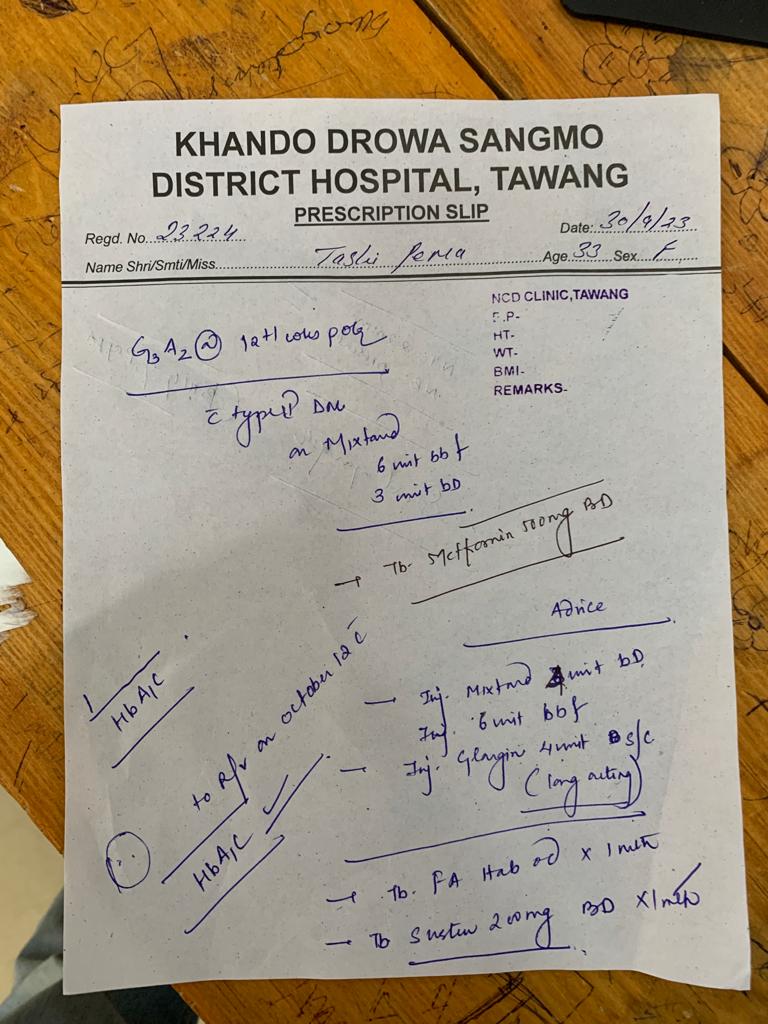 KHANDO DROWA SANGMO
DISTRICT HOSPITAL, TAWANG
PRESCRIPTION SLIP
Regd. No. 23224 Date: 30/9/23
Name Shri/Smti/Miss. Tashi Pema Age 33 Sex F
NCD CLINIC,TAWANG
B.P-
HT-
WT-
BMI-
REMARKS-
G3 A2 @ 12+1 wks
c type II DM
on Mixtard
6 unit bbf
3 unit bD
→ Tb. Metformin 500mg BD
Advice
HbA1C
to R/v on october 12 c
HbA1C ✓
— Inj. Mixtard unit bD
Inj. 6 unit bbf
— Inj. Glargin 4 unit s/c
(long acting)
→ Tb. FA 1tab od x 1 mth
→ Tb Susten 200mg BD x 1 mth